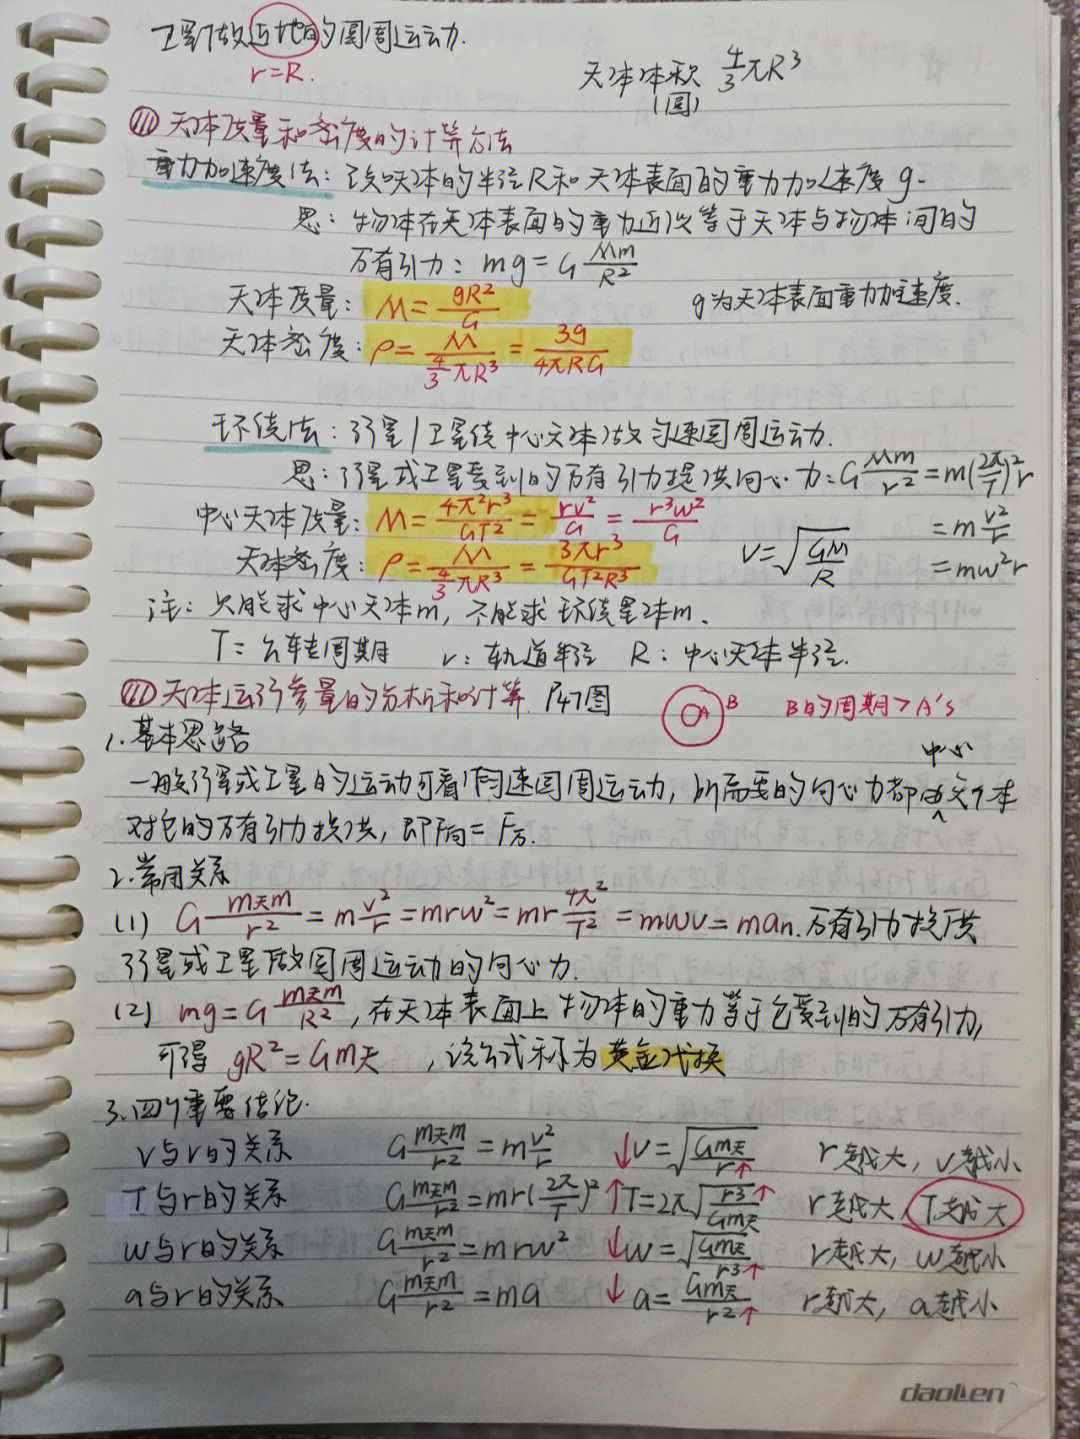 卫星做近地的圆周运动.
r=R.
天体体积 4/3 πR³
(圆)
Ⅲ 天体质量和密度的计算方法
重力加速度法: 已知天体的半径R和天体表面的重力加速度 g.
思: 物体在天体表面的重力近似等于天体与物体间的
万有引力: mg=G Mm/R²
天体质量: M=gR²/G
g为天体表面重力加速度.
天体密度: ρ=M/(4/3 πR³)=3g/4πRG
环绕法: 行星/卫星绕中心天体做匀速圆周运动.
思: 行星或卫星受到的万有引力提供向心力: G Mm/r²=m(2π/T)²r
中心天体质量: M=4π²r³/GT²=rv²/G=r³w²/G
=m v²/r
天体密度: ρ=M/(4/3 πR³)=3πr³/GT²R³
V=√(GM/R)
=mw²r
注: 只能求中心天体m, 不能求环绕星体m.
T=公转周期 r: 轨道半径 R: 中心天体半径.
Ⅲ 天体运行参量的分析和计算. P47图
A B B的周期>A's
1.基本思路
中心
一般行星或卫星的运动可看作匀速圆周运动, 所需要的向心力都由天体
对它的万有引力提供, 即F向=F万.
2.常用关系
(1) G m天m/r²=m v²/r=mrw²=mr 4π²/T²=mwv=man.万有引力提供
行星或卫星做圆周运动的向心力.
(2) mg=G m天m/R², 在天体表面上物体的重力等于它受到的万有引力,
可得 gR²=Gm天, 该公式称为黄金代换
3.四个重要结论.
v与r的关系 G m天m/r²=m v²/r ↓v=√(Gm天/r↑) r越大, v越小
T与r的关系 G m天m/r²=mr(2π/T)² ↑T=2π√(r³↑/Gm天) r越大, T越大
w与r的关系 G m天m/r²=mrw² ↓w=√(Gm天/r³↑) r越大, w越小
a与r的关系 G m天m/r²=ma ↓a=Gm天/r²↑ r越大, a越小
daolien